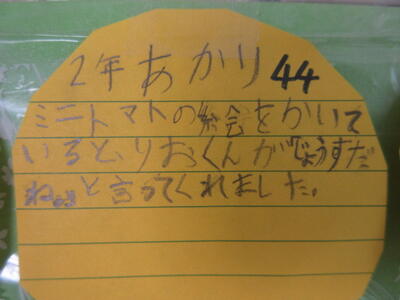 2年 あかり 44
ミニトマトの絵をかいて
いると、りおくんが「じょうずだ
ね。」と言ってくれました。